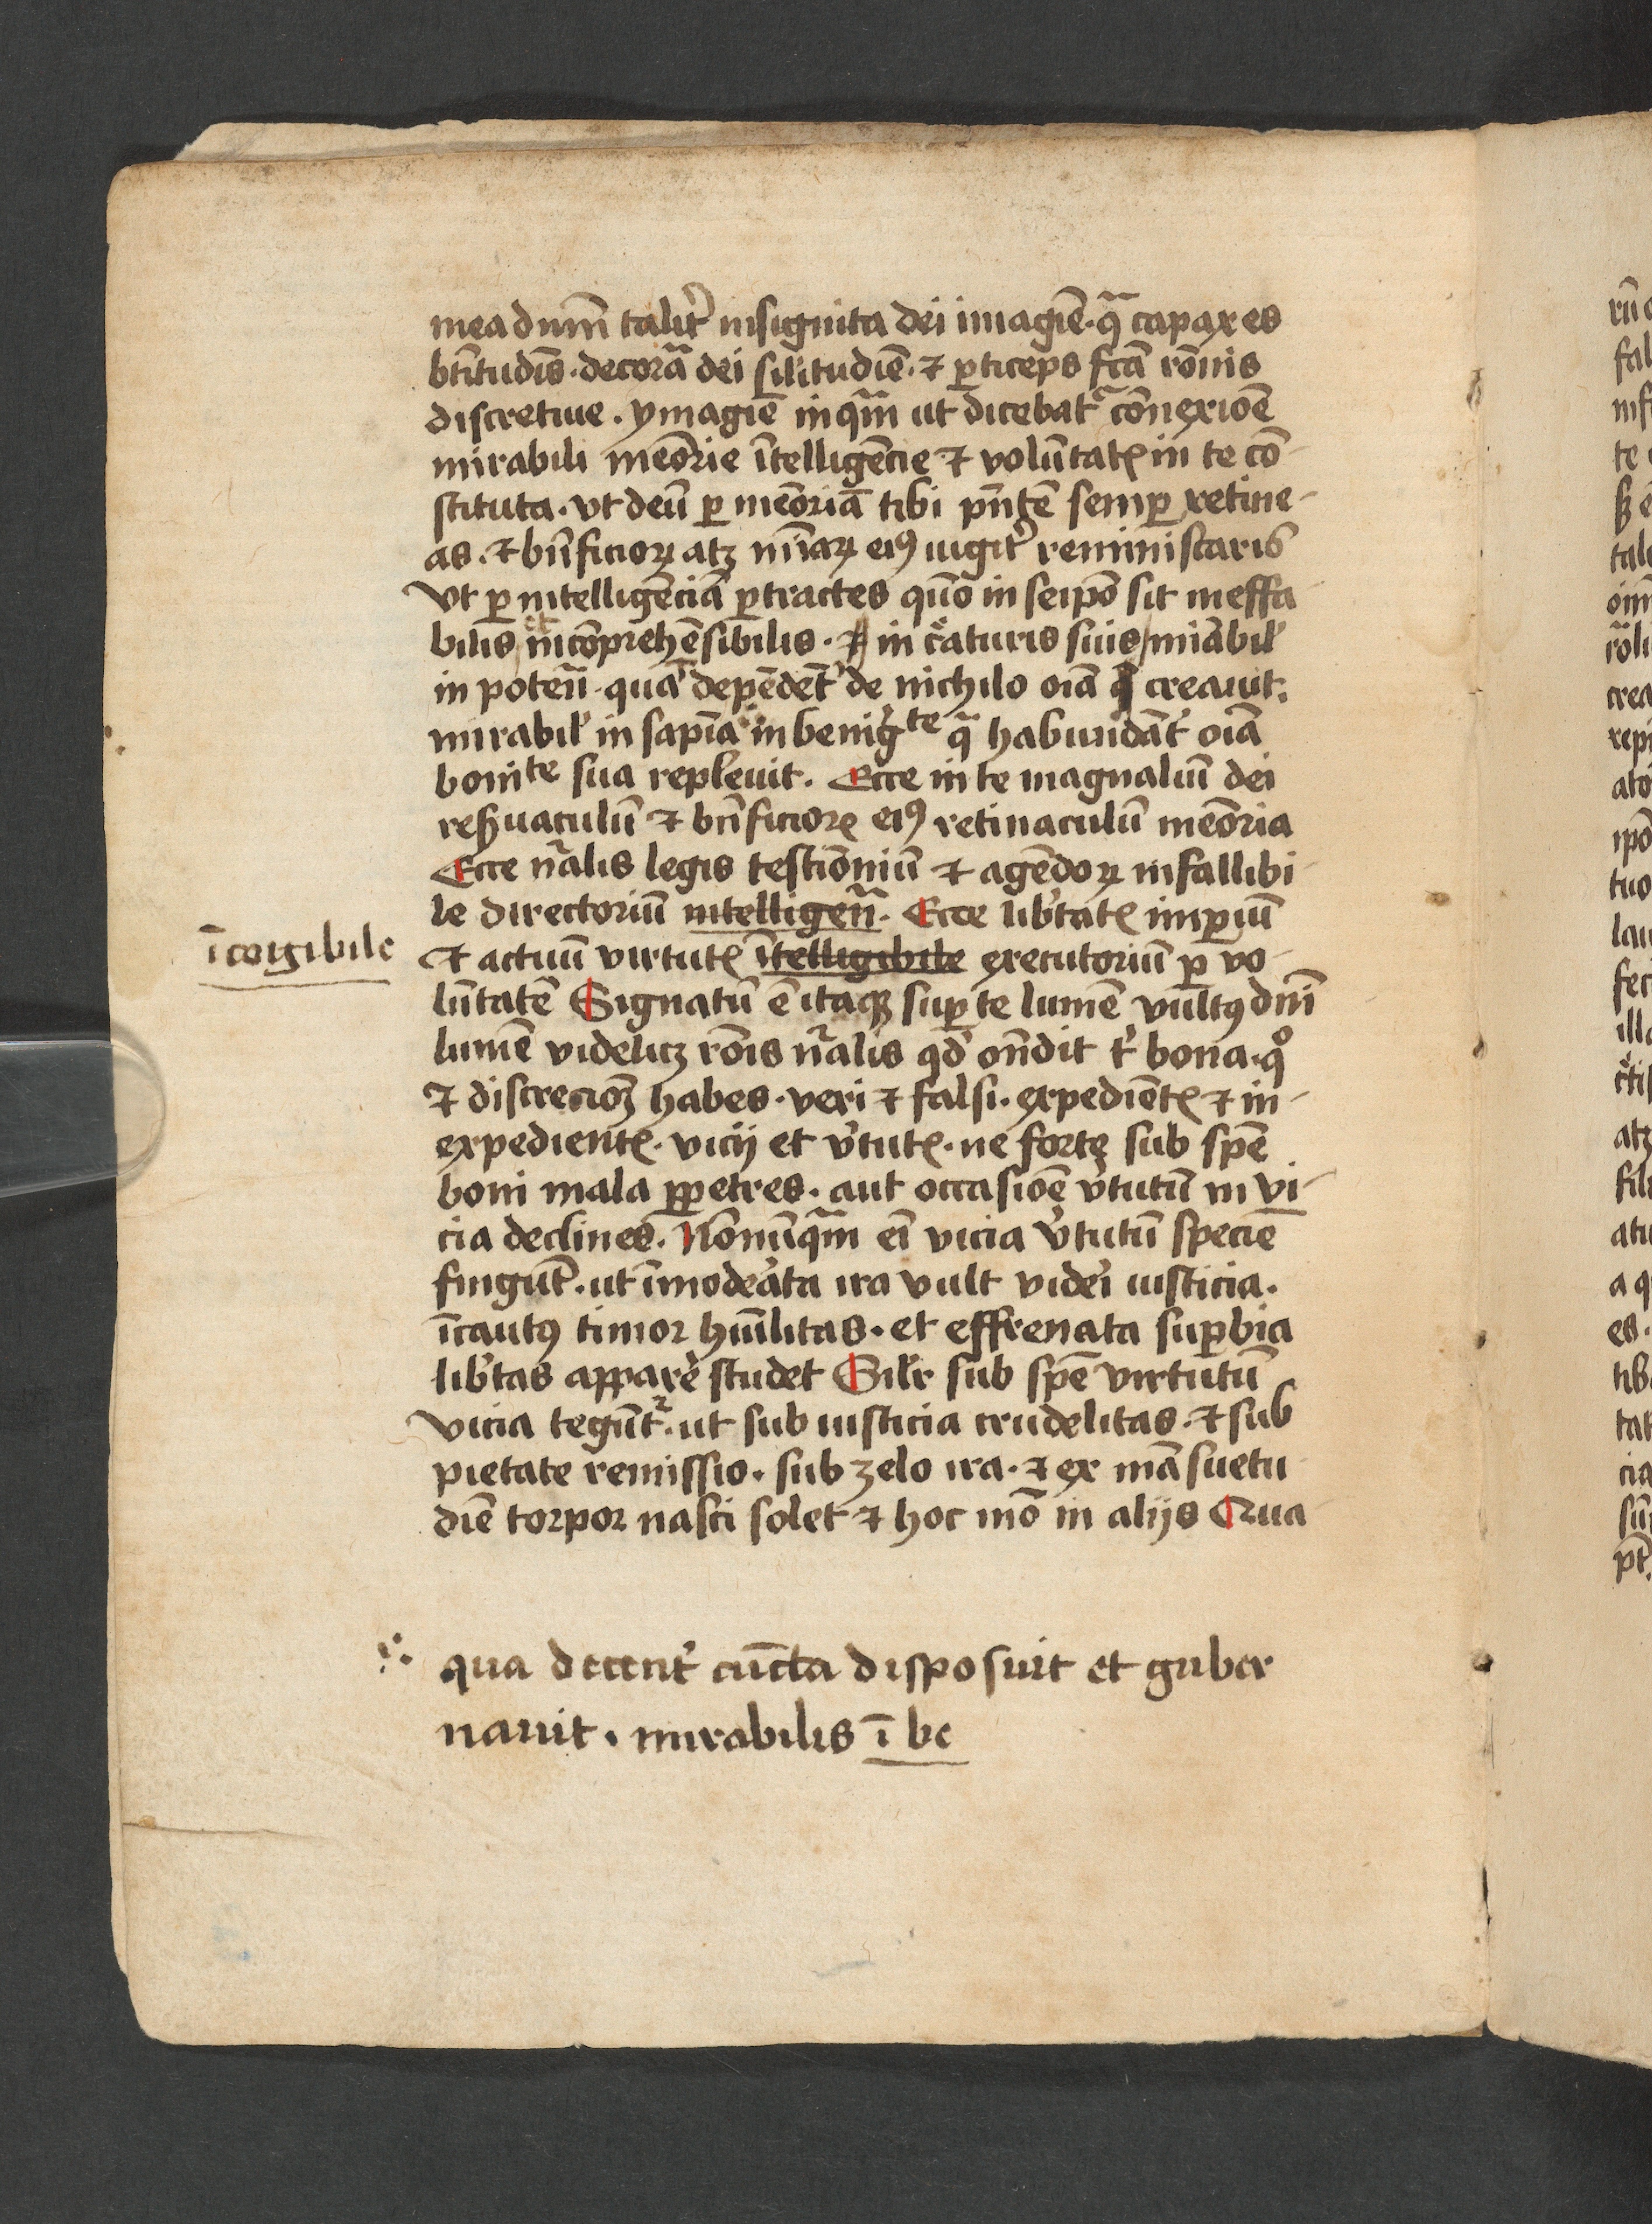 mea dnm̄ talit᷑ insignita dei imagīe · qͣ capax es
btītudīs · decorͣa dei sil̄itudīe · ⁊ ꝑticeps fcā rōnis
discretiue · ymagīe inqͣm ut dicebatͣ cōnexiōe
mirabili memōrie ītelligēcie ⁊ volūtatꝭ in te cō-
stituta · vt deū ꝑ memōriā tibi pn̄tē semꝑ retine-
as · ⁊ bn̄ficioꝝ atqꝫ miāꝝ eiꝰ iugit᷑ reminiscaris
Vt ꝑ intelligēciā ꝑtractes quō in seipō sit ineffa
bilis et incōprehēsibilis · ⁊ in c᷑aturis suis mirabil̓
in poten̄ · qua depēdēt᷑ de nichilo oīa creauit.
mirabil̓ in sapīa in benigᵗᵉ qͣ habundāt᷑ oīa
boniᵗᵉ sua repleuit . Ecce in te magnaliū dei
reẜuaculū ⁊ bn̄ficioꝝ eiꝰ retinaculū memōria
Ecce nͣalis legis testimōniū ⁊ agēdoꝝ infallibi
le directoriū intelligenͣ . Ecce lib᷑tatꝭ imꝑiū
īcorigibile
⁊ actuū virtutꝭ ītelligibile executoriū ꝑ vo-
lūtatē Signatū ē itaqꝫ suꝑ te lumē vultꝰ dn̄i
lumē videlicꝫ rōis nͣalis qd̓ on̄dit t᷑ bona · qͦ
⁊ discrecioꝫ habes · veri ⁊ falsi · expediētꝭ ⁊ in-
expedientꝭ · vicij et v᷑tutꝭ · ne forte sub spē
boni mala ꝑpetres · aut occasiōe v᷑tutū in vi-
cia declines . Nōnūqͣm eī vicia v᷑tutū speciē
fingūt · ut īmode᷑ata ira vult vide᷑i iusticia .
īcautꝰ timor huīlitas · et effrenata suꝑbia
lib᷑tas appare᷑ studet Sil̓r sub spē virtutū
vicia tegūtᷣ · ut sub iusticia crudelitas · ⁊ sub
pietate remissio · sub zelo ira · ⁊ ex māsuetu
dīe torpor nasci solet ⁊ hoc mō in alijs Qua
qua decent᷑ cūcta disposuit et guber
nauit · mirabilis ī be